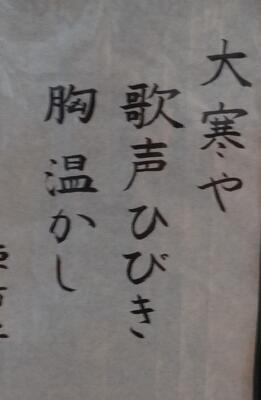 大寒や
歌声ひびき
胸温かし